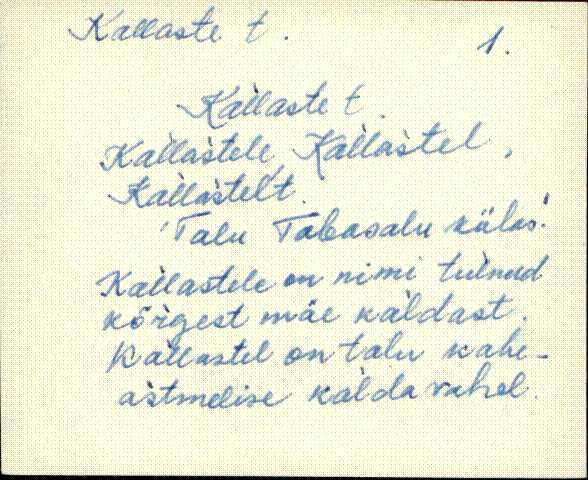 Kallaste t.
1.
Kallaste t.
Kallastele, Kallastel,
Kallastelt.
'Talu Tabasalu külas'.
Kallastele on nimi tulnud
kõrgest mäe kaldast.
Kallastel on talu kahe-
astmelise kalda vahel.